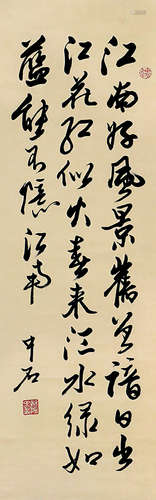 江南好風景舊曾諳日出
江花红似火春来江水绿如
蓝能不憶江南
中石